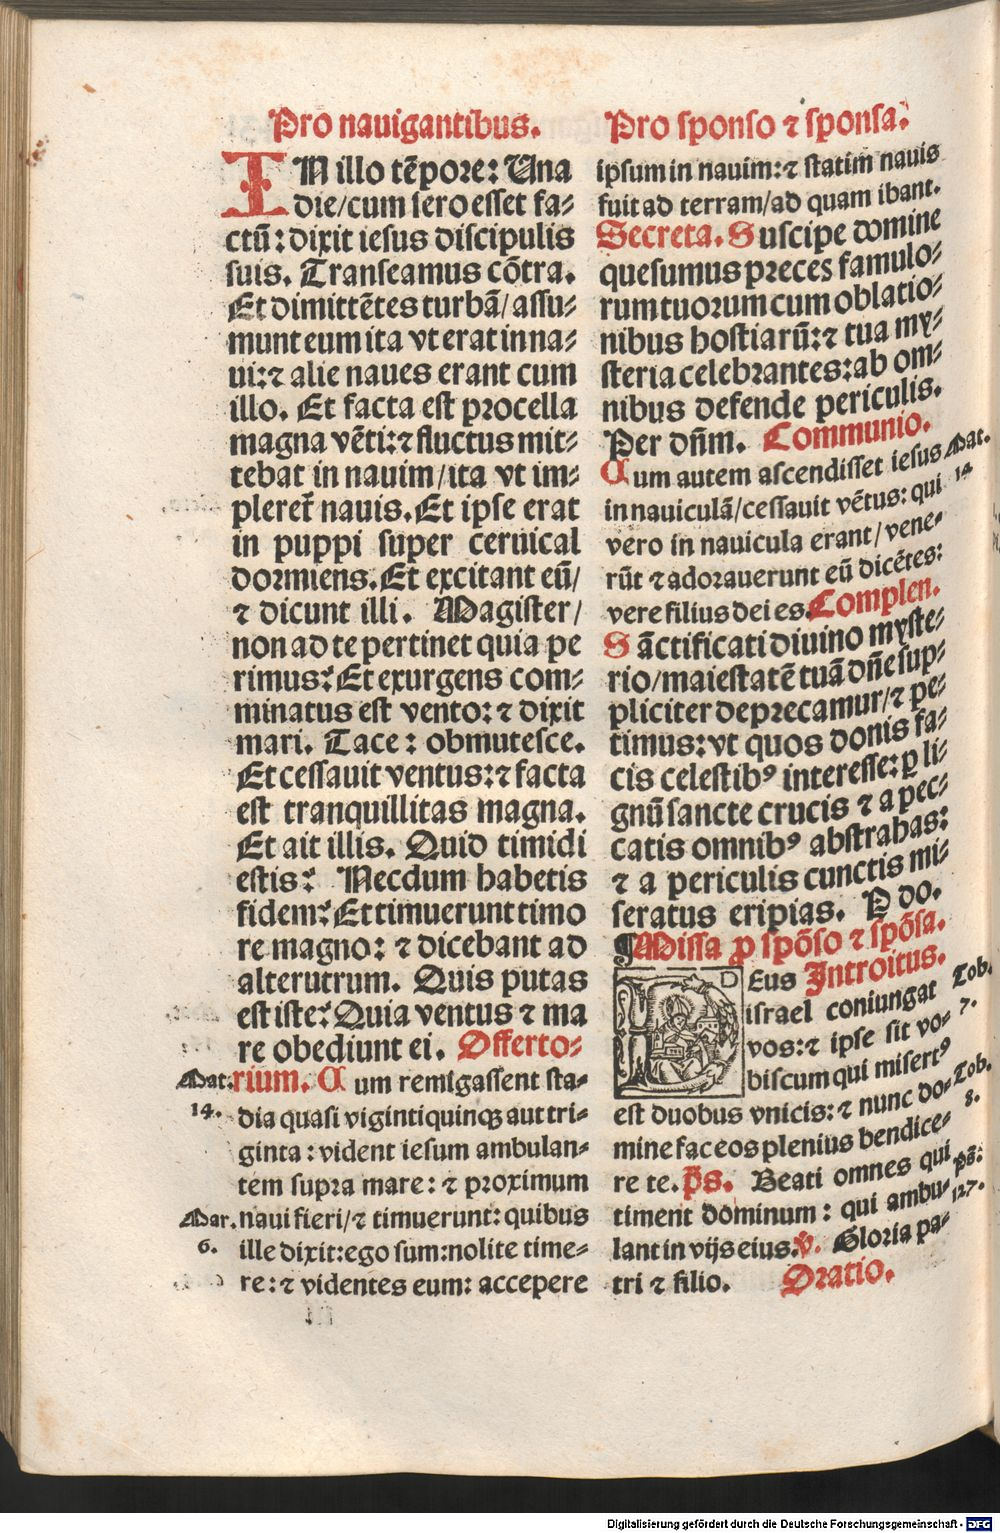 Pro nauigantibus.
IN illo tēpore: Una
die/cum sero esset fa⸗
ctū: dixit iesus discipulis
suis. Transeamus cōtra.
Et dimittētes turbā/assu⸗
munt eum ita vt erat in na⸗
ui:⁊ alie naues erant cum
illo. Et facta est procella
magna vēti:⁊ fluctus mit⸗
tebat in nauim/ita vt im⸗
pleret᷑ nauis. Et ipse erat
in puppi super ceruical
dormiens. Et excitant eū/
⁊ dicunt illi. Magister/
non ad te pertinet quia pe
rimus? Et exurgens com⸗
minatus est vento:⁊ dixit
mari. Tace: obmutesce.
Et cessauit ventus:⁊ facta
est tranquillitas magna.
Et ait illis. Quid timidi
estis? Necdum habetis
fidem? Et timuerunt timo
re magno: ⁊ dicebant ad
alterutrum. Quis putas
est iste? Quia ventus ⁊ ma
re obediunt ei. Offerto⸗
Mat. rium. Cum remigassent sta⸗
14. dia quasi vigintiquinqꝫ aut tri⸗
ginta: vident iesum ambulan⸗
tem supra mare: ⁊ proximum
Mar. naui fieri/⁊ timuerunt: quibus
6. ille dixit:ego sum:nolite time⸗
re:⁊ videntes eum: accepere
Pro sponso ⁊ sponsa.
ipsum in nauim:⁊ statim nauis
fuit ad terram/ad quam ibant.
Secreta. Suscipe domine
quesumus preces famulo⸗
rum tuorum cum oblatio⸗
nibus hostiarū:⁊ tua my⸗
steria celebrantes:ab om⸗
nibus defende periculis.
Per dn̄m. Communio.
Cum autem ascendisset iesus Mat.
in nauiculā/cessauit vētus: qui 14
vero in nauicula erant/vene⸗
rūt ⁊ adorauerunt eū dicētes:
vere filius dei es. Complen.
Sāctificati diuino myste⸗
rio/maiestatē tuā dn̄e sup⸗
pliciter deprecamur/⁊ pe⸗
timus: vt quos donis fa⸗
cis celestibꝰ interesse: ꝑ li⸗
gnū sancte crucis ⁊ a pec⸗
catis omnibꝰ abstrahas:
⁊ a periculis cunctis mi⸗
seratus eripias. P do.
¶Missa ꝓ spōso ⁊ spōsa.
D Eus Introitus.
israel coniungat Tob.
vos:⁊ ipse sit vo⸗ 7.
biscum qui misertꝰ
est duobus vnicis:⁊ nunc do⸗ Tob.
mine fac eos plenius bendice⸗ 8.
re te. p̄s. Beati omnes qui ps̄:
timent dominum: qui ambu⸗ 127.
lant in vijs eius. ℣. Gloria pa⸗
tri ⁊ filio. Oratio.
Digitalisierung gefördert durch die Deutsche Forschungsgemeinschaft - DFG